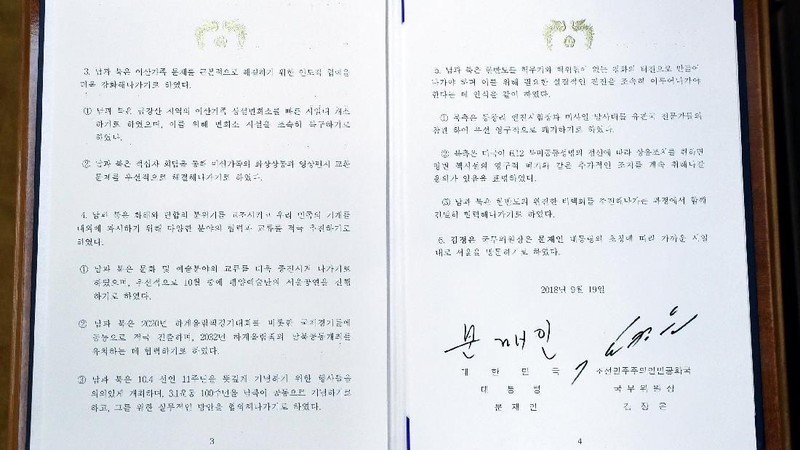 3. 남과 북은 이산가족 문제를 근본적으로 해결하기 위한 인도적 협력을
더욱 강화해나가기로 하였다.
① 남과 북은 금강산 지역의 이산가족 상설면회소를 빠른 시일내 개소
하기로 하였으며, 이를 위해 면회소 시설을 조속히 복구하기로
하였다.
② 남과 북은 적십자 회담을 통해 이산가족의 화상상봉과 영상편지 교환
문제를 우선적으로 해결해나가기로 하였다.
4. 남과 북은 화해와 단합의 분위기를 고조시키고 우리 민족의 기개를
내외에 과시하기 위해 다양한 분야의 협력과 교류를 적극 추진하기로
하였다.
① 남과 북은 문화 및 예술분야의 교류를 더욱 증진시켜 나가기로
하였으며, 우선적으로 10월 중에 평양예술단의 서울공연을 진행
하기로 하였다.
② 남과 북은 2020년 하계올림픽경기대회를 비롯한 국제경기들에
공동으로 적극 진출하며, 2032년 하계올림픽의 남북공동개최를
유치하는 데 협력하기로 하였다.
③ 남과 북은 10.4 선언 11주년을 뜻깊게 기념하기 위한 행사들을
의의있게 개최하며, 3.1운동 100주년을 남북이 공동으로 기념하기로
하고, 그를 위한 실무적인 방안을 협의해나가기로 하였다.
3
5. 남과 북은 한반도를 핵무기와 핵위협이 없는 평화의 터전으로 만들어
나가야 하며 이를 위해 필요한 실질적인 진전을 조속히 이루어나가야
한다는 데 인식을 같이 하였다.
① 북측은 동창리 엔진시험장과 미사일 발사대를 유관국 전문가들의
참관 하에 우선 영구적으로 폐기하기로 하였다.
② 북측은 미국이 6.12 북미공동성명의 정신에 따라 상응조치를 취하면
영변 핵시설의 영구적 폐기와 같은 추가적인 조치를 계속 취해나갈
용의가 있음을 표명하였다.
③ 남과 북은 한반도의 완전한 비핵화를 추진해나가는 과정에서 함께
긴밀히 협력해나가기로 하였다.
6. 김정은 국무위원장은 문재인 대통령의 초청에 따라 가까운 시일
내로 서울을 방문하기로 하였다.
2018년 9월 19일
문재인
대한민국 조선민주주의인민공화국
대통령 국무위원장
문재인 김정은
4